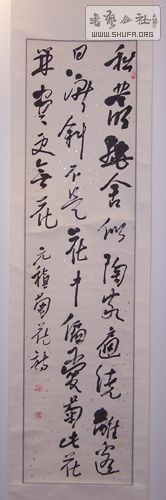 書法公社
WWW.SHUFA.ORG
秋叢繞舍似陶家遍繞離邊
日漸斜不是花中偏愛菊此花
開盡更無花
元稹菊花詩